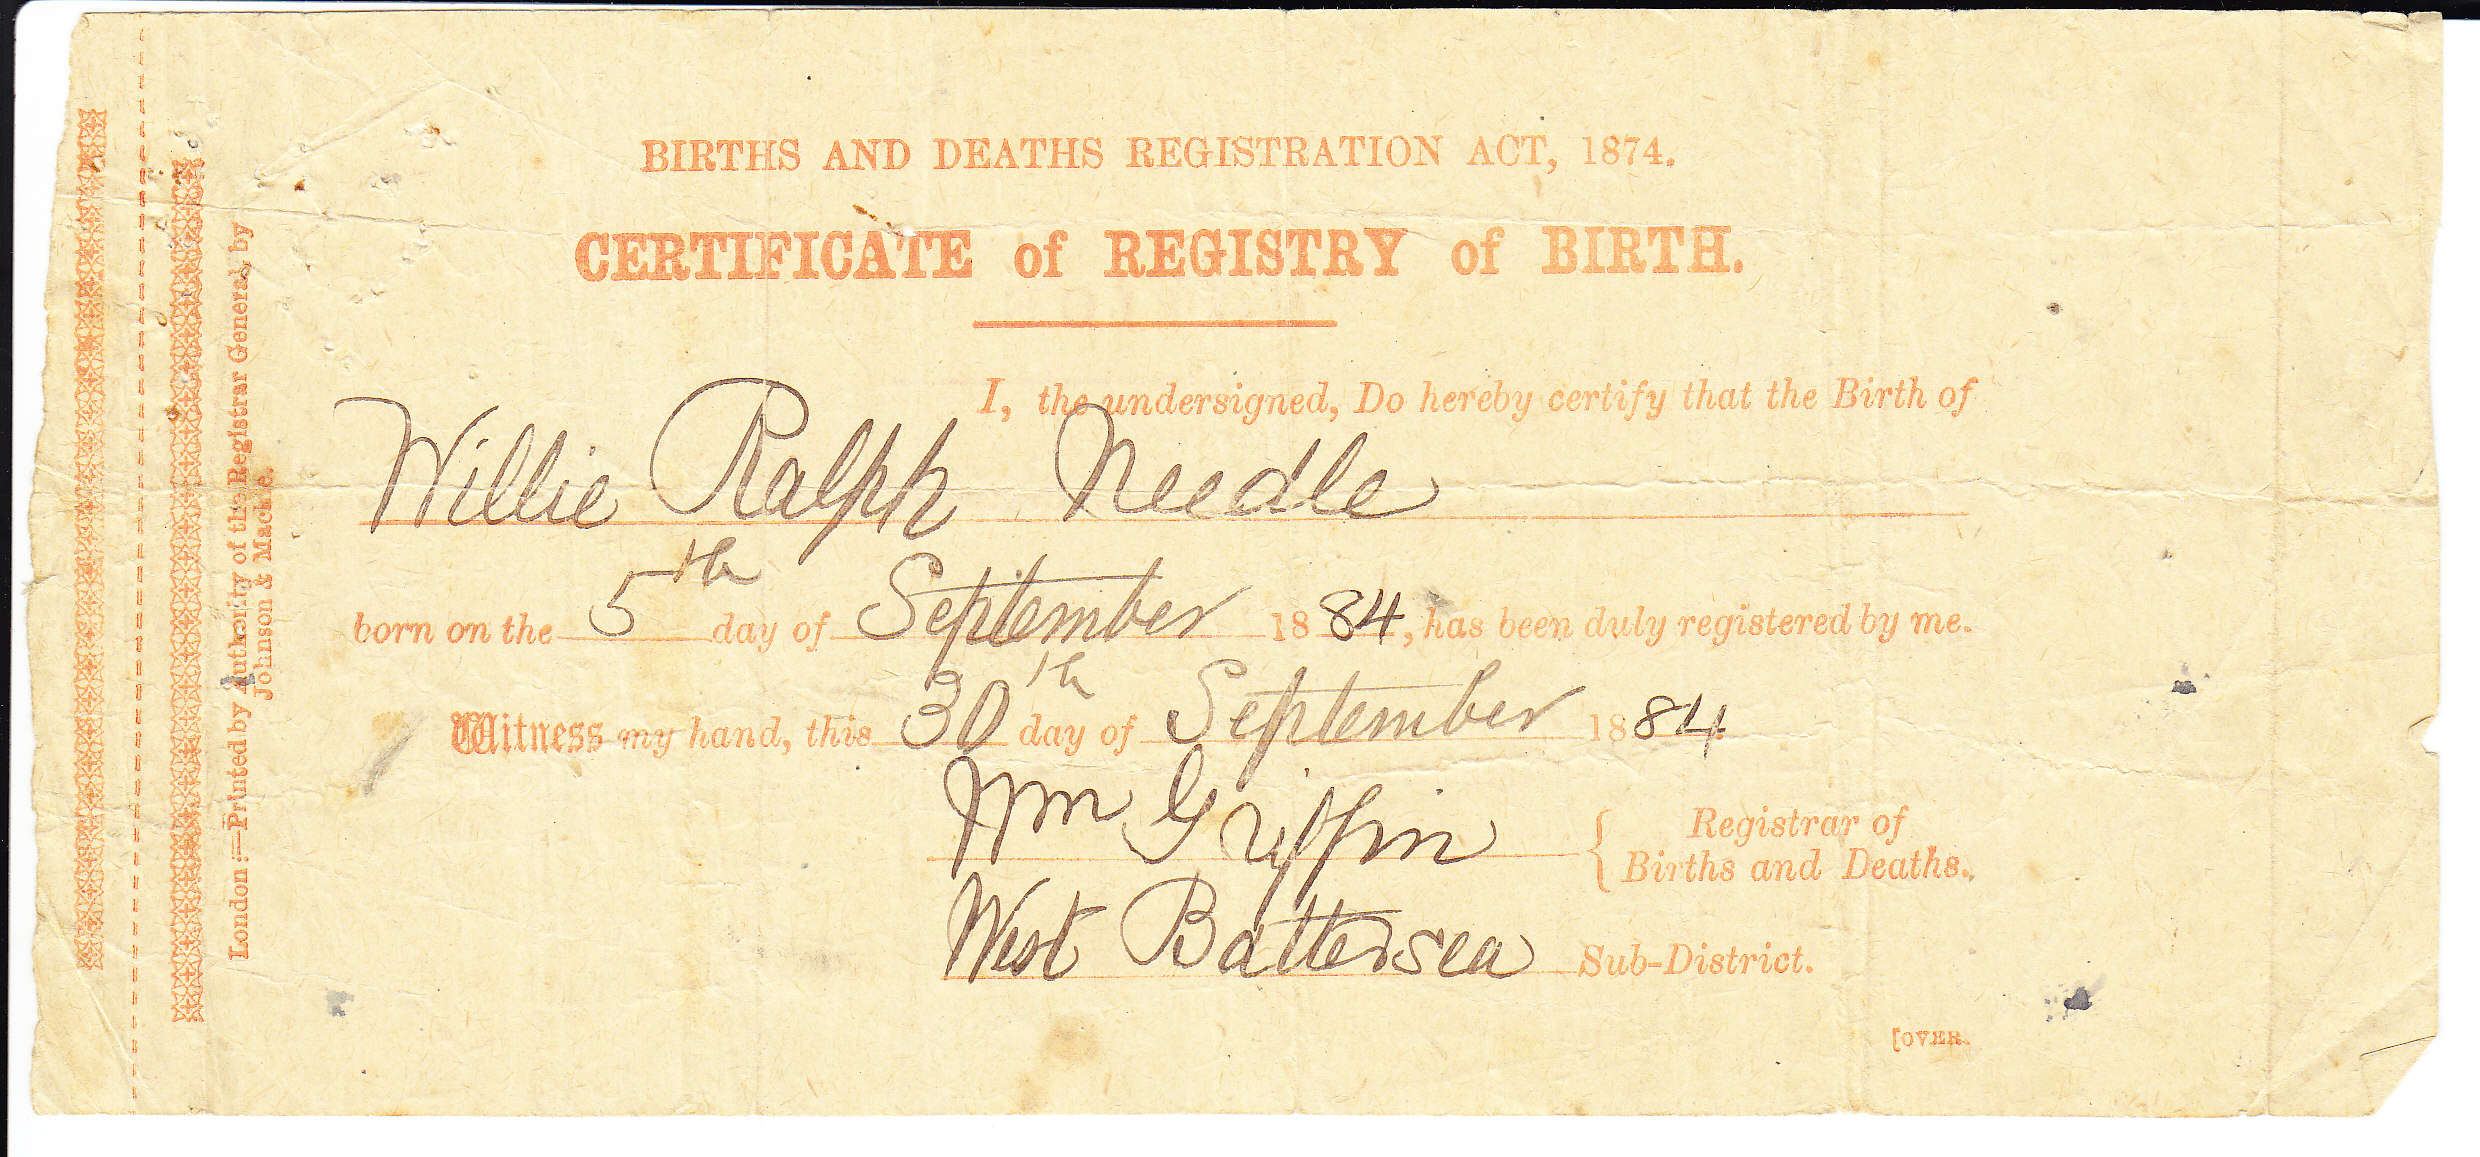 BIRTHS AND DEATHS REGISTRATION ACT, 1874.
CERTIFICATE of REGISTRY of BIRTH.
I, the undersigned, Do hereby certify that the Birth of
Willie Ralph Needle
born on the 5th day of September 1884, has been duly registered by me.
Witness my hand, this 30th day of September 1884.
Wm Griffin { Registrar of
Births and Deaths.
West Battersea Sub-District.
[OVER.
London:—Printed by Authority of the Registrar General, by
Johnson & Mackie.